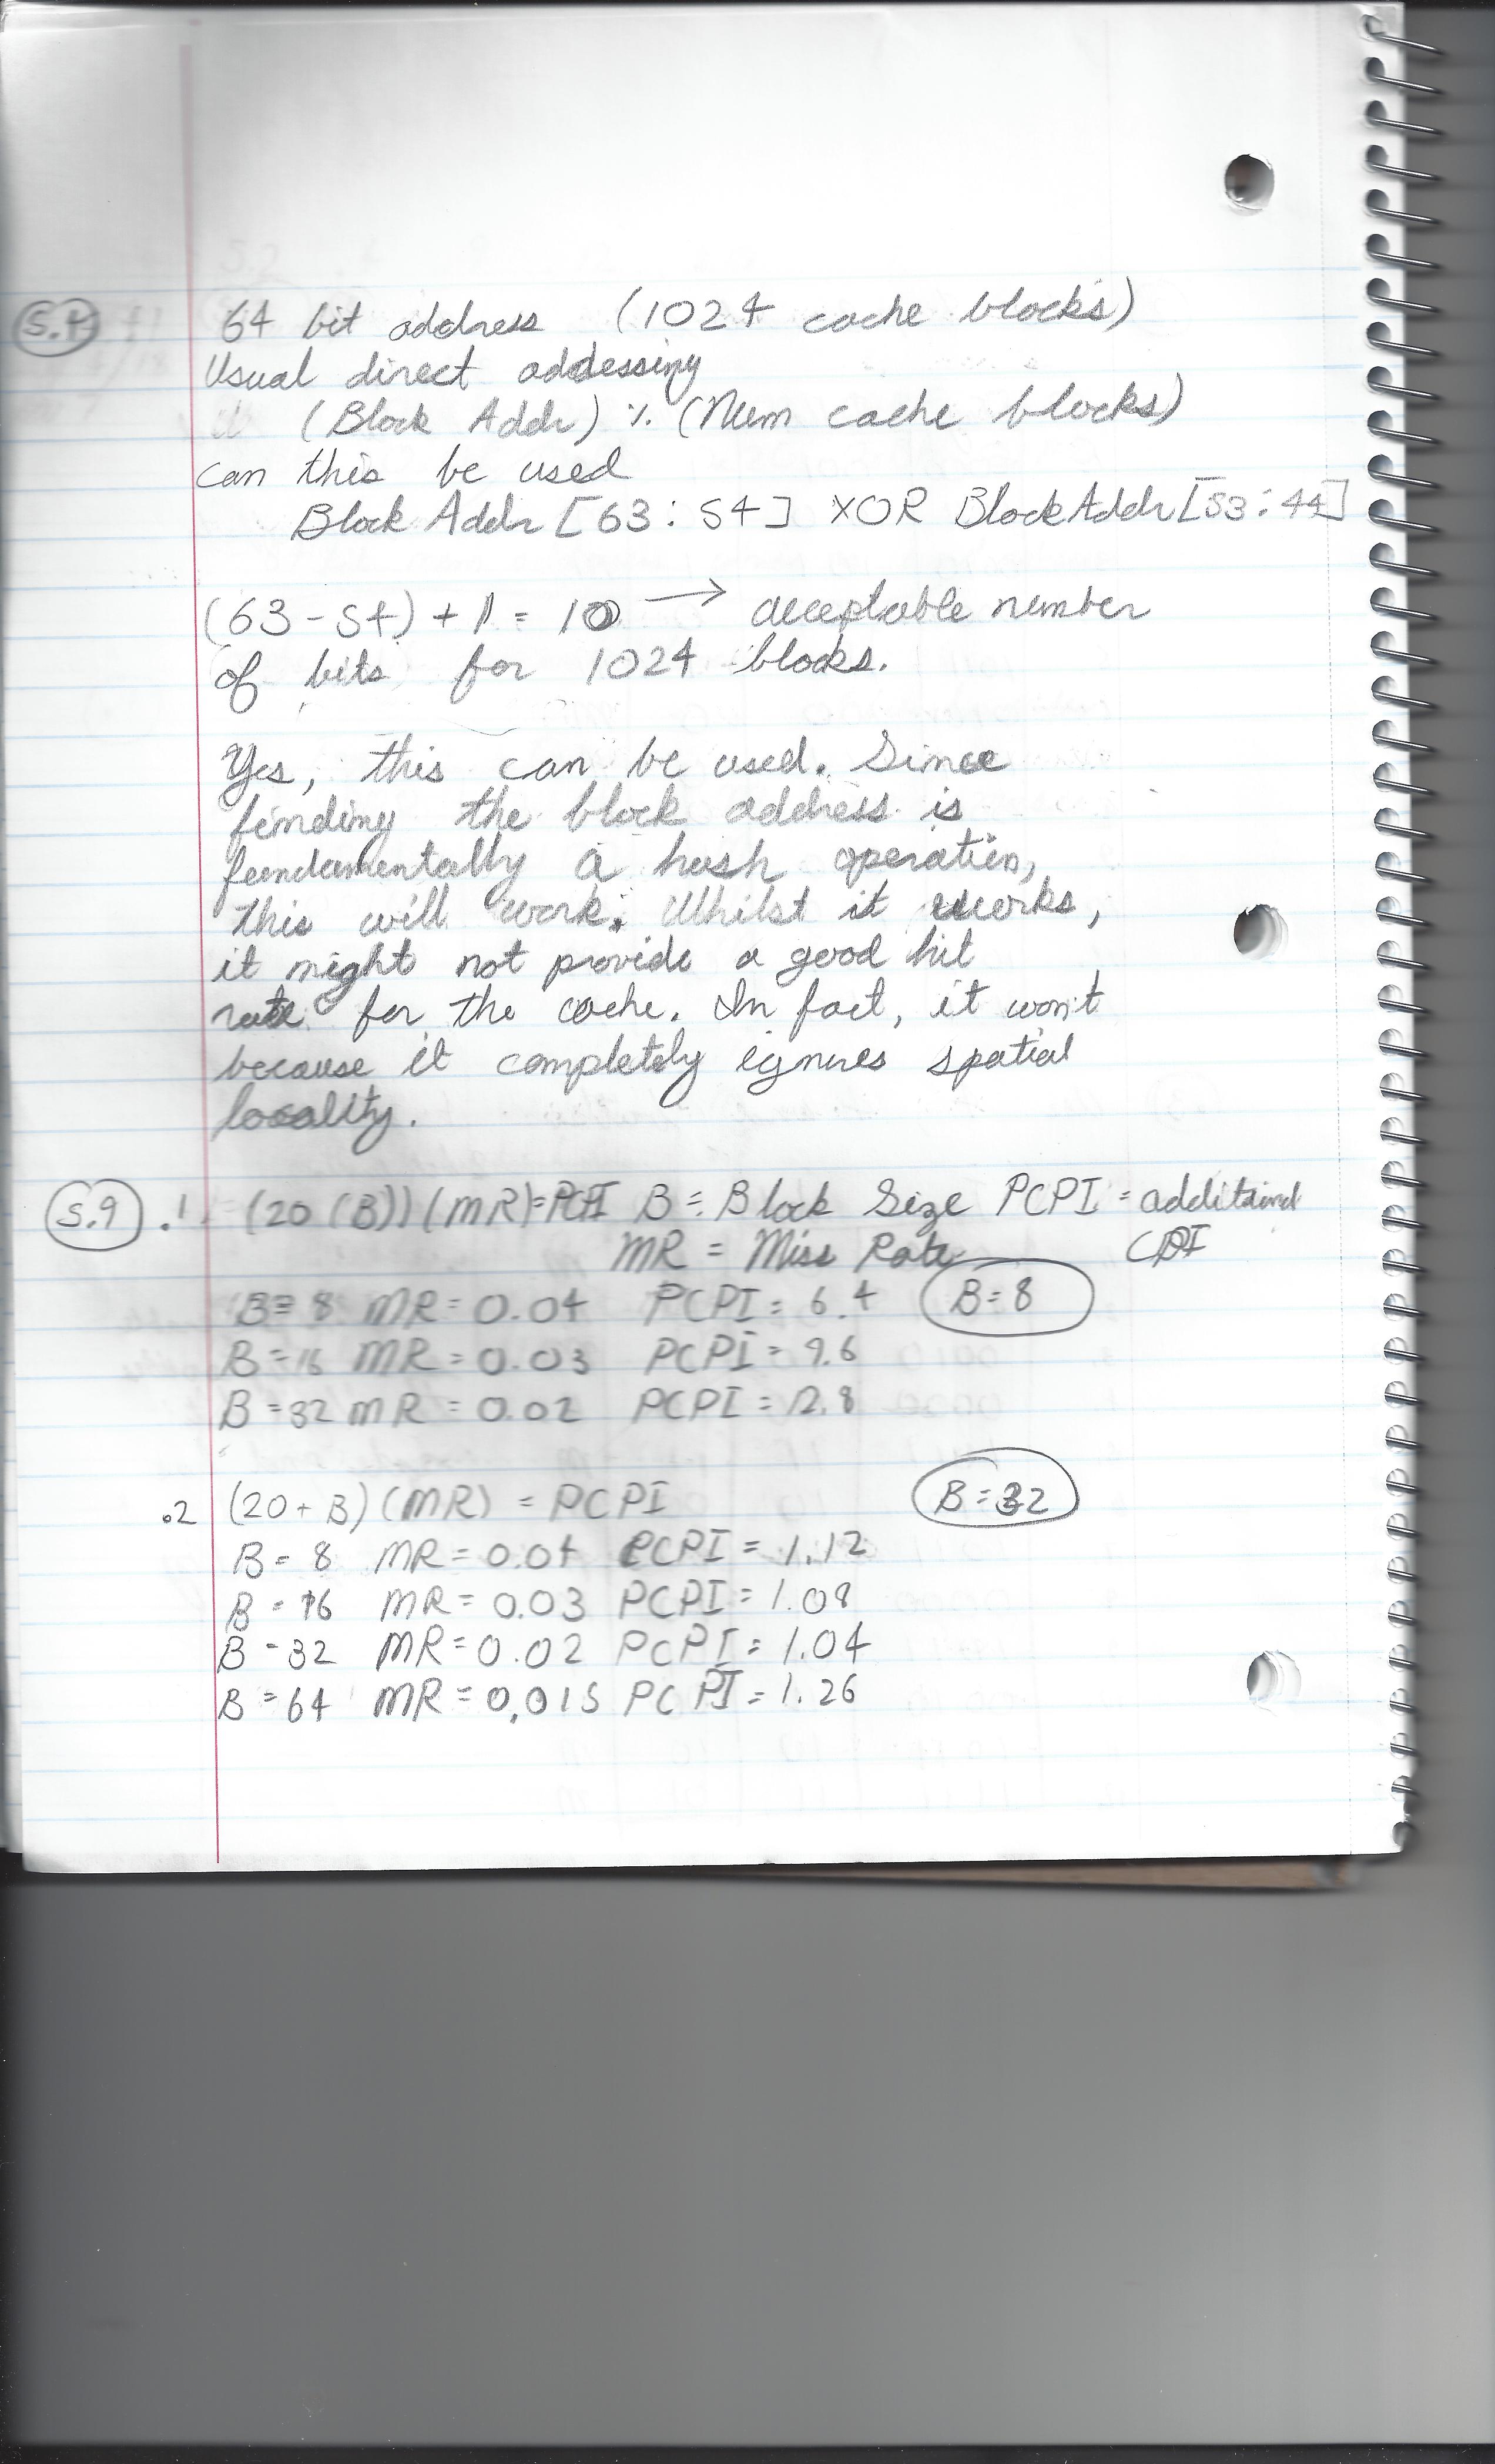 5.4 64 bit address (1024 cache blocks)
Usual direct addessing
(Block Addr) % (Num cache blocks)
can this be used
Block Addr [63:54] XOR Block Addr [53:44]
(63-54) + 1 = 10 → acceptable number
of bits for 1024 blocks.
Yes, this can be used. Since
finding the block address is
fundamentally a hash operation,
this will work. Whilst it works,
it might not provide a good hit
rate for the cache. In fact, it won't
because it completely ignores spatial
locality.
5.9 .1 (20 (B)) (MR) = PCPI B = Block Size PCPI = additional
MR = Miss Rate CPI
B = 8 MR = 0.04 PCPI = 6.4 B=8
B = 16 MR = 0.03 PCPI = 9.6
B = 32 MR = 0.02 PCPI = 12.8
.2 (20 + B) (MR) = PCPI B=32
B = 8 MR = 0.04 PCPI = 1.12
B = 16 MR = 0.03 PCPI = 1.08
B = 32 MR = 0.02 PCPI = 1.04
B = 64 MR = 0.015 PCPI = 1.26